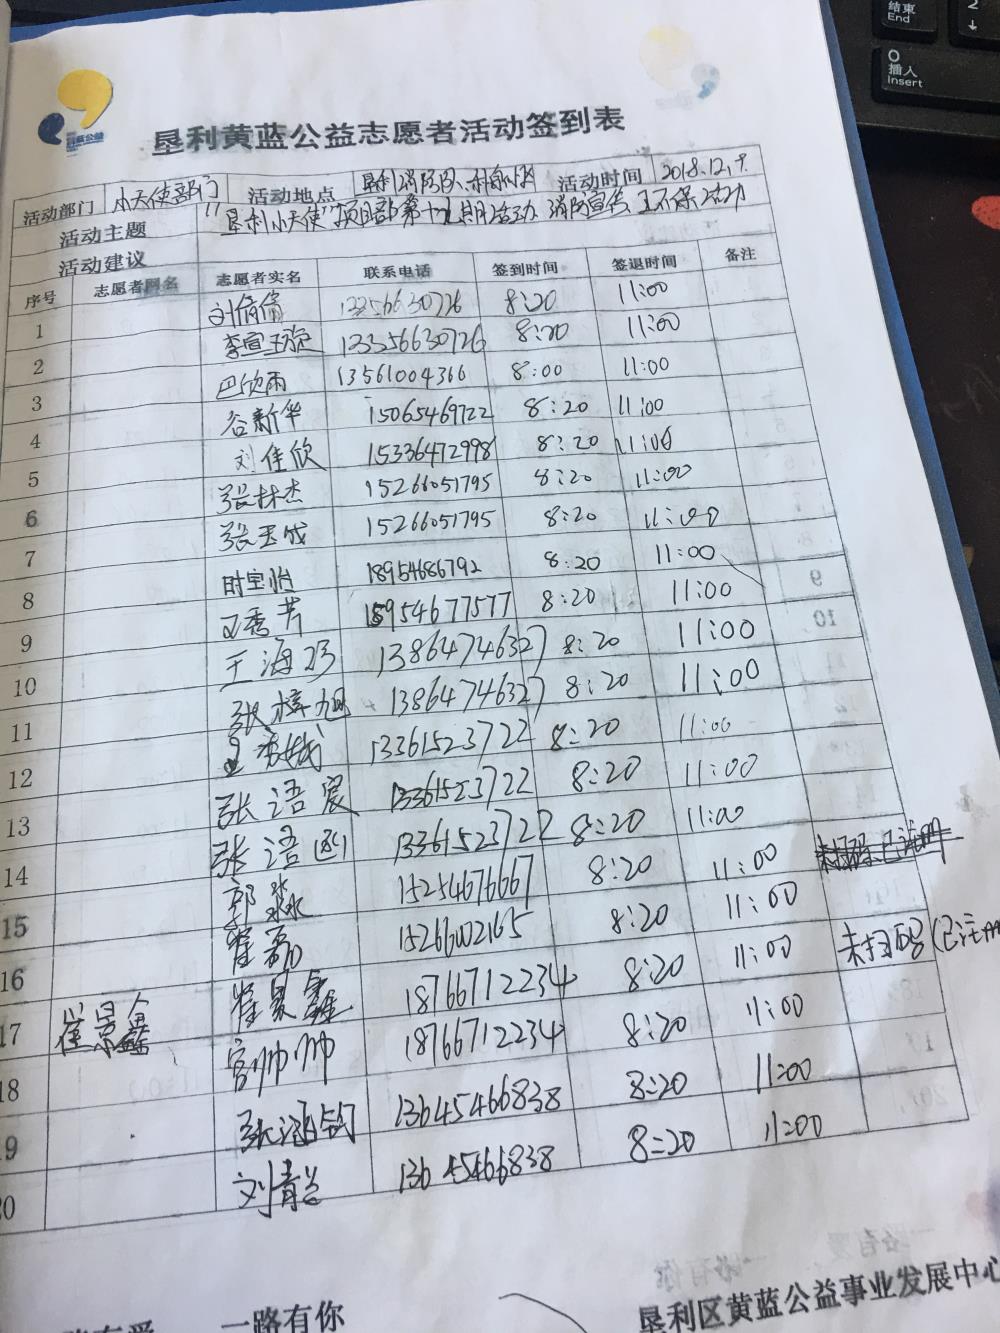 黄蓝公益
垦利黄蓝公益志愿者活动签到表
活动部门 小天使部门 活动地点 垦利消防队 活动时间 2018.12.9.
活动主题 "垦利小天使"项目部第十九期活动 消防宣传 环保活动
活动建议
序号 志愿者网名 志愿者实名 联系电话 签到时间 签退时间 备注
1 刘倩倩 13356630726 8:20 11:00
2 李宣 13356630726 8:20 11:00
3 巴欣雨 13561004366 8:00 11:00
4 谷新华 15065469722 8:20 11:00
5 刘佳欣 15336472998 8:20 11:00
6 张林杰 15266051795 8:20 11:00
7 张玉成 15266051795 8:20 11:00
8 时宝怡 18954686792 8:20 11:00
9 王秀芹 15954677577 8:20 11:00
10 王海 13864746327 8:20 11:00
11 张梓旭 13864746327 8:20 11:00
12 王 13361523722 8:20 11:00
13 张语宸 13361523722 8:20 11:00
14 张语 13361523722 8:20 11:00
15 郭淼 15254676667 8:20 11:00
16 崔 15266002165 8:20 11:00
17 崔景鑫 崔景鑫 18766712234 8:20 11:00 未扫码(已注册
18 宫帅帅 18766712234 8:20 11:00
19 张涵钧 13645466838 8:20 11:00
20 刘青兰 13645466838 8:20 11:00
一路有你
垦利区黄蓝公益事业发展中心
结束
End
0
插入
Insert
2